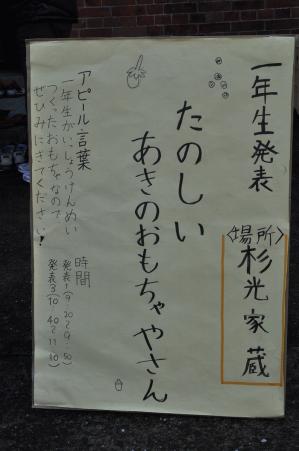 一年生発表
〈場所〉
杉光家蔵
たのしい
あきのおもちゃやさん
アピール言葉
一年生がいっしょうけんめい
つくったおもちゃなので
ぜひみにきてください!
時間
発表1(9:20~9:50)
発表3(10:40~11:10)